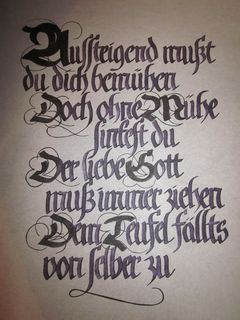 Aufsteigend mußt
du dich bemühen
Doch ohne Mühe
sinkest du
Der liebe Gott
muß immer ziehen
Dem Teufel fällts
von selber zu